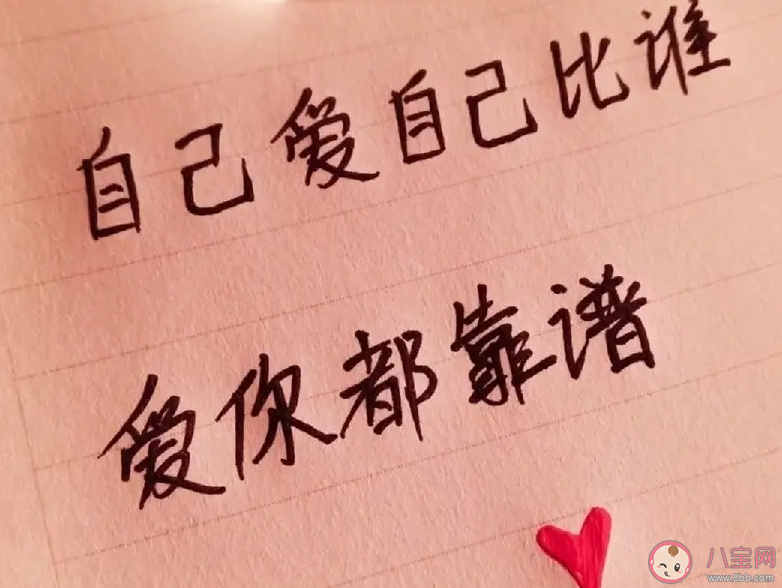 自己爱自己比谁
爱你都靠谱
八宝网
www.8bb.com